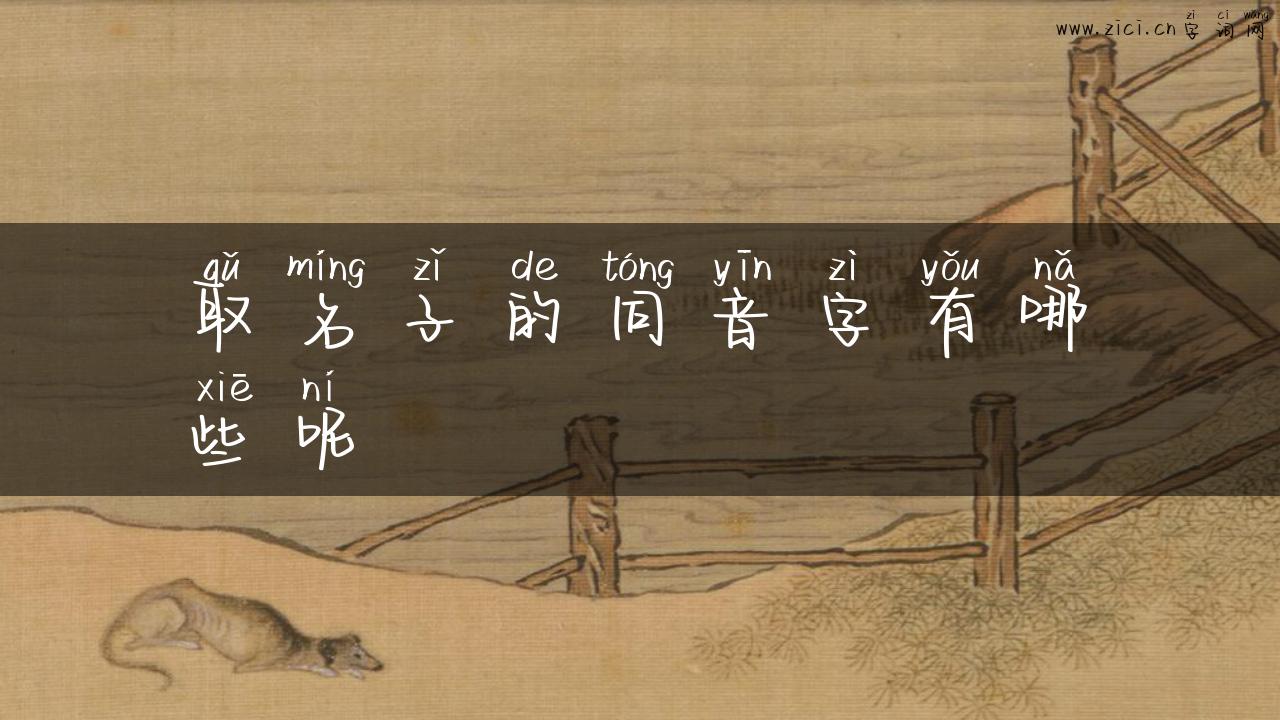 zì cí wǎng
www.zici.cn 字词网
qǔ míng zǐ de tóng yīn zì yǒu nǎ
取名子的同音字有哪
xiē ní
些呢